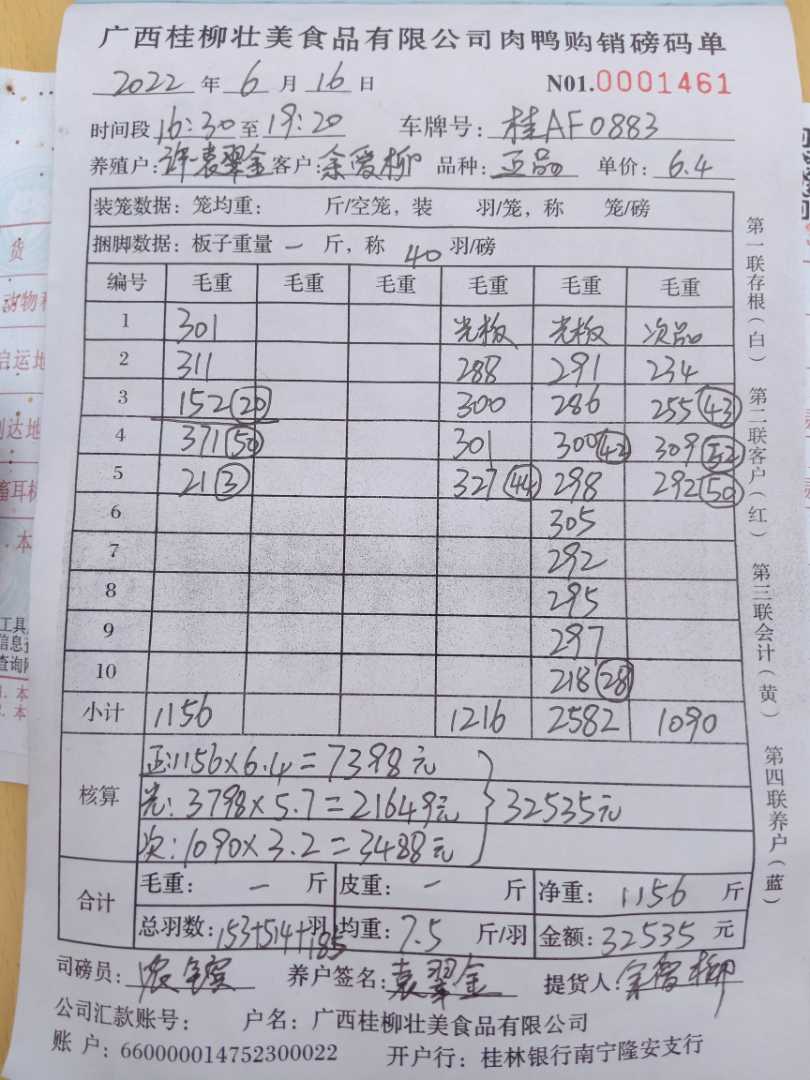 广西桂柳壮美食品有限公司肉鸭购销磅码单
2022 年 6 月 16 日 N01.0001461
时间段 16:30 至 19:20 车牌号: 桂AF0883
养殖户: 许袁翠金 客户: 余爱柳 品种: 正品 单价: 6.4
装笼数据: 笼均重: 斤/空笼, 装 羽/笼, 称 笼/磅
捆脚数据: 板子重量 一 斤, 称 40 羽/磅
编号 毛重 毛重 毛重 毛重 毛重 毛重
1 301 光板 光板 次品
2 311 288 291 234
3 152 20 300 286 255 43
4 371 50 301 300 42 309 52
5 21 3 327 44 298 292 50
6 305
7 292
8 295
9 297
10 218 28
小计 1156 1216 2582 1090
核算
正:1156×6.4=7398元
光:3798×5.7=21649元 32535元
次:1090×3.2=3488元
合计
毛重: 一 斤 皮重: 一 斤 净重: 1156 斤
总羽数: 153+514+185 羽 均重: 7.5 斤/羽 金额: 32535 元
司磅员: 养户签名: 袁翠金 提货人: 余爱柳
公司汇款账号: 户名: 广西桂柳壮美食品有限公司
账 户: 660000014752300022 开户行: 桂林银行南宁隆安支行
第一联存根(白)
第二联客户(红)
第三联会计(黄)
第四联养户(蓝)
货
动物种
启运地
到达地
畜耳标
本
工具
信息
查询网
1. 本
2. 本